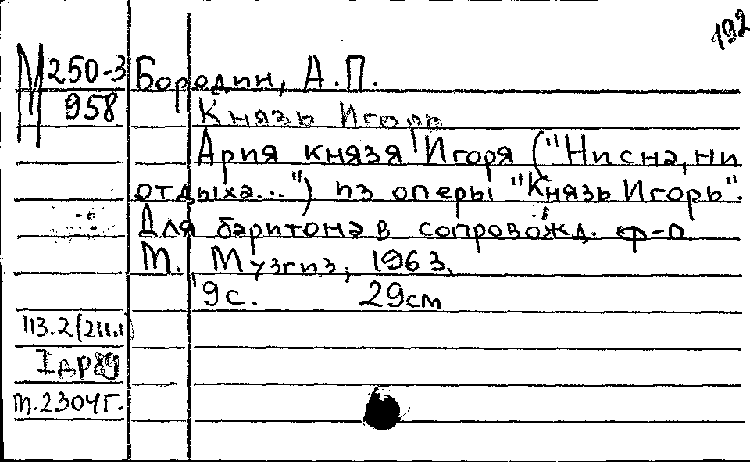 192
М 250-3 Бородин, А.П.
958 Князь Игорь
Ария князя Игоря ("Ни сна, ни
отдыха...") из оперы "Князь Игорь".
Для баритона в сопровожд. ф-п.
М. Музгиз, 1963.
9с. 29см
113.2
т.2304г.